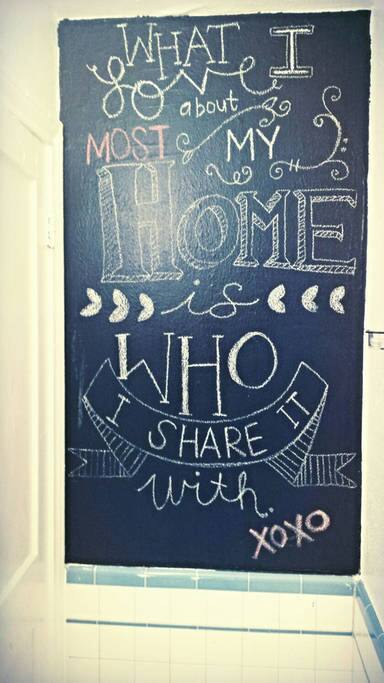 WHAT I
love
about
MOST MY
HOME
is
WHO
I SHARE IT
with.
XOXO